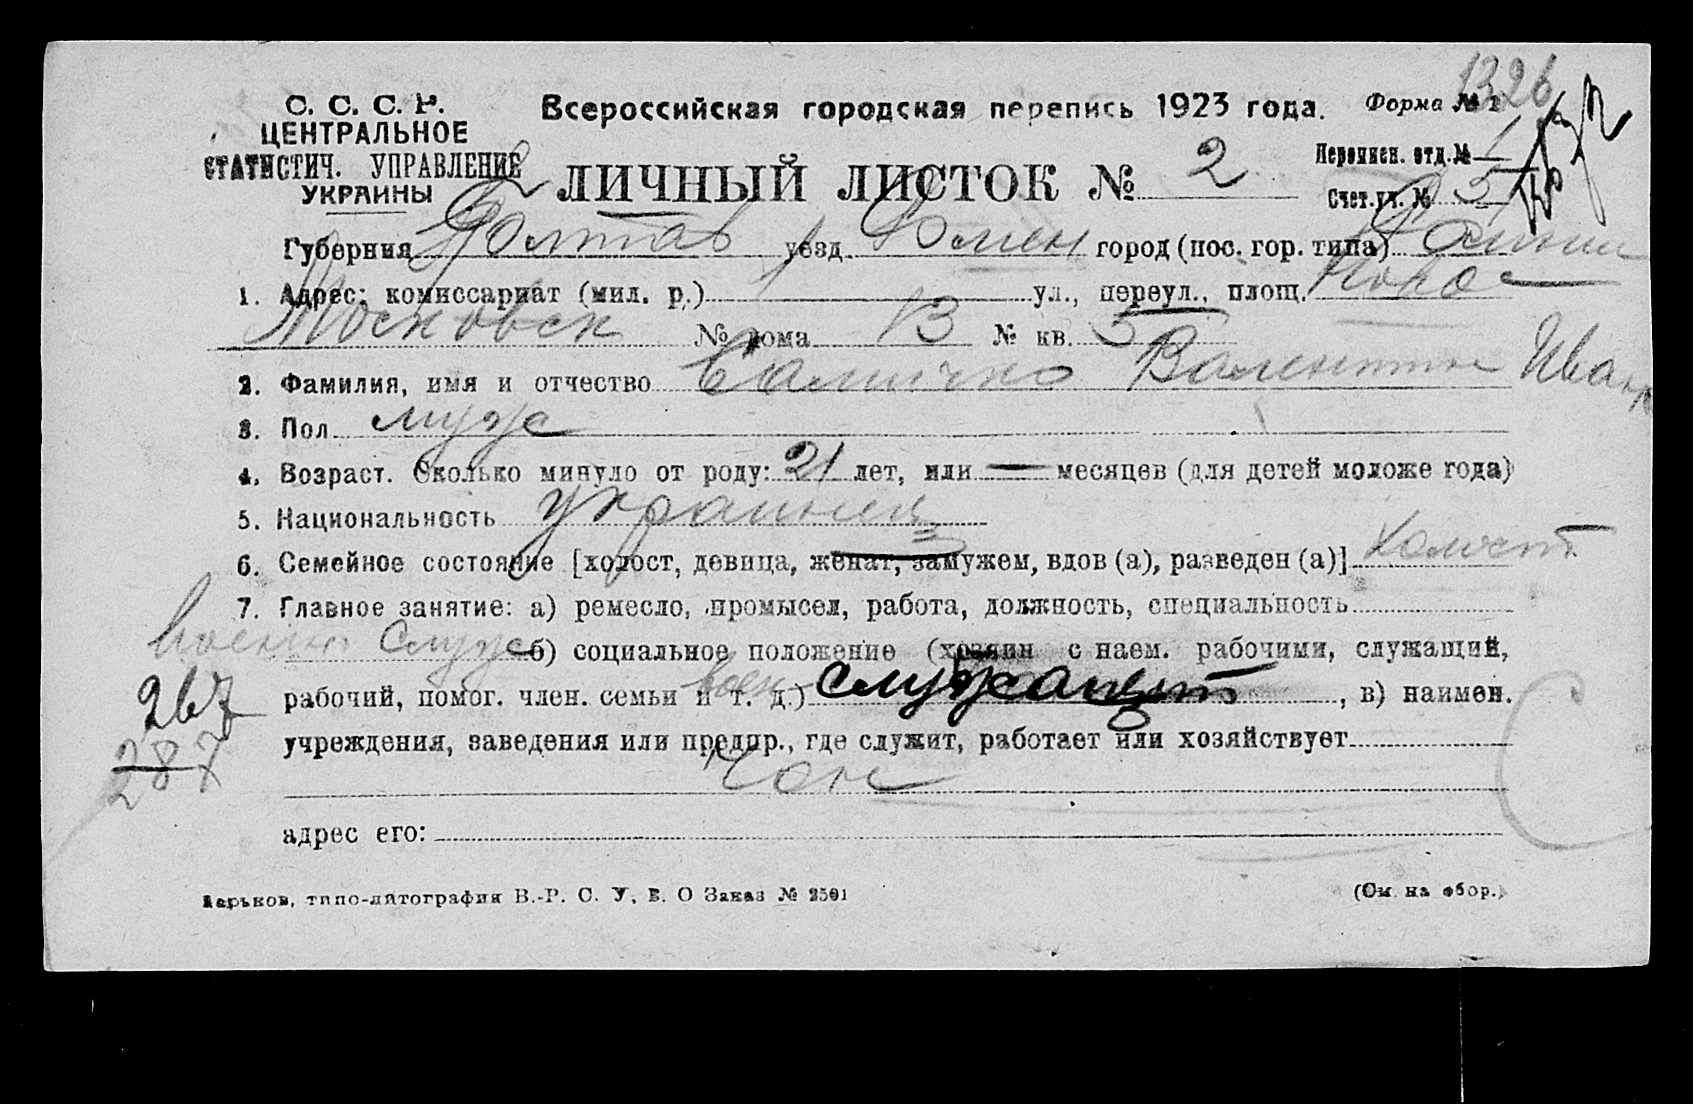 1326
С. С. С. Р.
ЦЕНТРАЛЬНОЕ
СТАТИСТИЧ. УПРАВЛЕНИЕ
УКРАИНЫ
Всероссийская городская перепись 1923 года. Форма № 1
ЛИЧНЫЙ ЛИСТОК № 2
Переписн. отд. № 1
Счет. уч. № 5
Губерния Полтав уезд Ромен город (пос. гор. типа) Ромны
1. Адрес: комиссариат (мил. р.) ул., переул., площ. Ново-
Московск № дома 13 № кв. 5
2. Фамилия, имя и отчество Валентин Иван
3. Пол муж
4. Возраст. Сколько минуло от роду: 21 лет, или — месяцев (для детей моложе года)
5. Национальность украинец
6. Семейное состояние [холост, девица, женат, замужем, вдов (а), разведен (а)] холост
7. Главное занятие: а) ремесло, промысел, работа, должность, специальность
Военно служ б) социальное положение (хозяин с наем. рабочими, служащий,
267 рабочий, помог. член. семьи и т. д.) воен служащий, в) наимен.
287 учреждения, заведения или предпр., где служит, работает или хозяйствует
Чон
адрес его:
Харьков, типо-литография В.-Р. С. У, В. О Заказ № 2501 (См. на обор.)